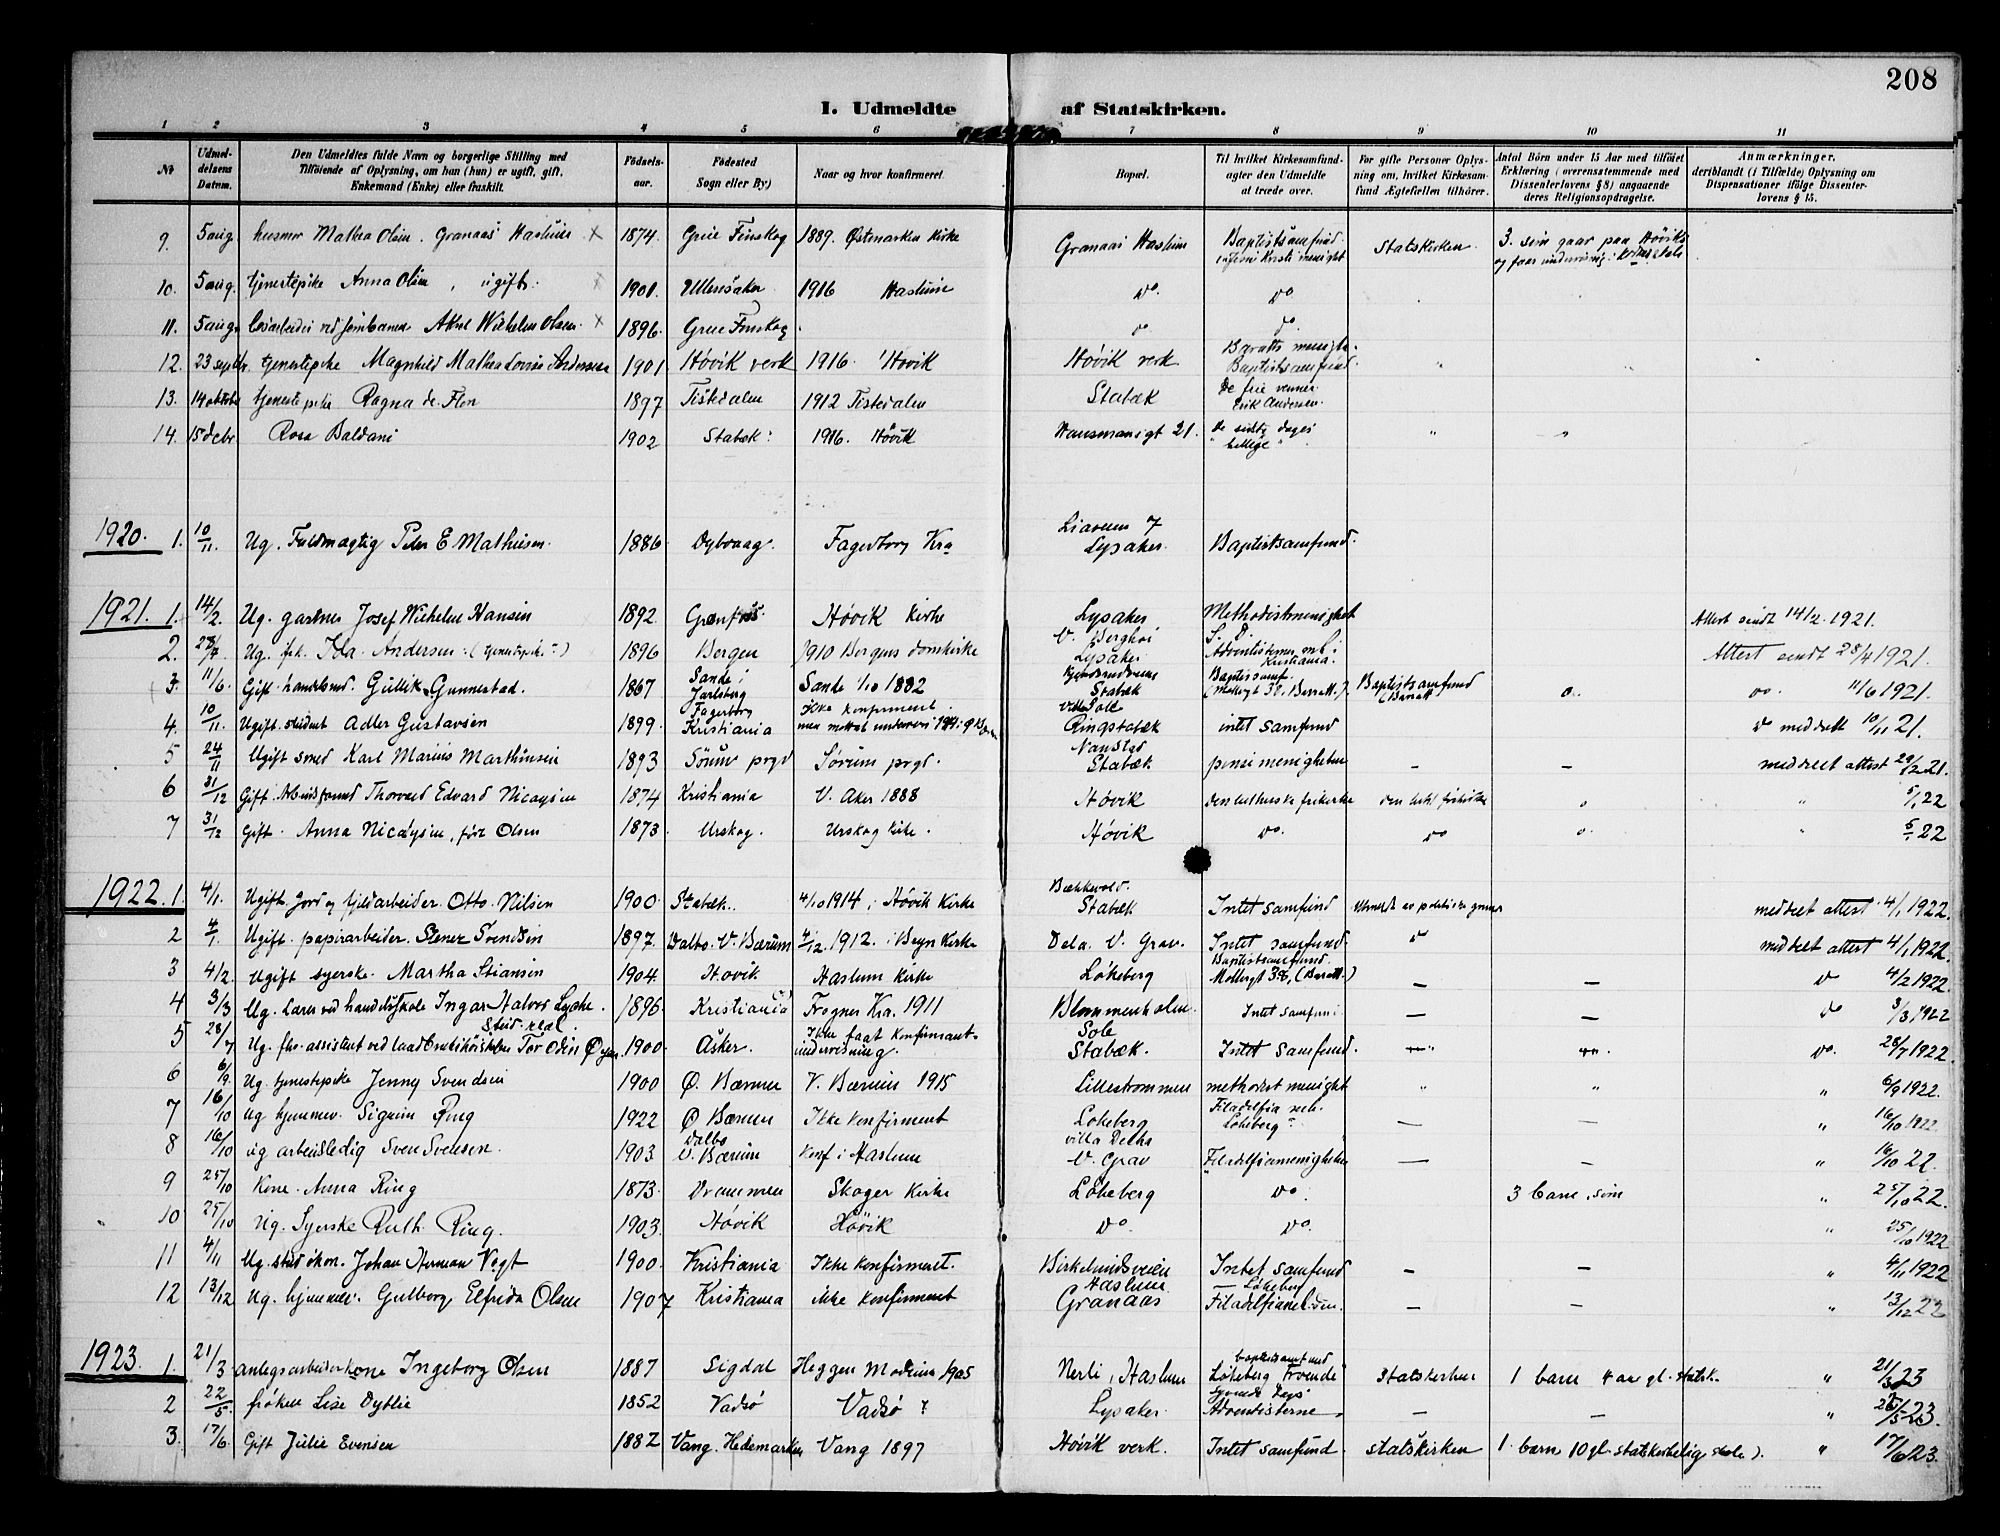 208
I. Udmeldte af Statskirken.
1 2 3 4 5 6 7 8 9 10 11
No
Udmeldelsens Datum.
Den Udmeldtes fulde Navn og borgerlige Stilling med
Tilføiende af Oplysning, om han (hun) er ugift, gift,
Enkemand (Enke) eller fraskilt.
Fødselsaar.
Fødested
Sogn eller By)
Naar og hvor konfirmeret.
Bopæl.
Til hvilket Kirkesamfund agter den Udmeldte at træde over.
For gifte Personer Oplysning om, hvilket Kirkesamfund Ægtefællen tilhører.
Antal Börn under 15 Aar med tilföiet
Erklæring (overensstemmende med
Dissenterlovens § 8) angaaende
deres Religionsopdragelse.
Anmærkninger,
deriblandt (i Tilfælde) Oplysning om
Dispensationer ifölge Dissenterlovens § 15.
9. 5 aug. husmor Mathea Olsen. Granaas Haslum x 1874. Grue Finskog 1889. Østmarken Kirke Granaas Haslum Baptistsamfund Statskirken 3. som gaar paa Høviks
10. 5 aug. tjenestepike Anna Olsen, ugift. x 1901. Ullensaker 1916 Haslum do. do
11. 5 aug. Wilhelm Olsen. x 1896. Grue Finskog do do.
12. 23 septbr. tjenestepike Magnhild Mathea Lovise Andersen 1901 Høvik verk 1916. Høvik Høvik verk Baratts menighe. Baptistsamfund. " "
13. 14 oktober tjenestepike Ragna de Flon 1897 Tistedalen 1912 Tistedalen Stabæk De frie venner. Erik Andersen.
14. 15 debr Rosa Baldani 1902 Stabæk. 1916. Høvik Hausmansgt 21. De sidste dages " hellige " " "
1920. 1. 10/11. Ug. Fuldmægtig Peder E Mathisen. 1886. Dybvaag. Fagerborg Kra 7 Lysaker. Baptistsamfund.
1921. 1. 14/2. Ug. gartner Josef Wilhelm Hansen 1892. Høvik Kirke Lysaker Methodistmenighet Attest sendt 14/2. 1921.
2. Ug. frk. Ida Andersen. (tjenestepike) 1896 Bergen 1910 Bergens domkirke V. Berghøi Lysaker S. D. Adventisternes m. i Kristiania. Attest sendt 28/4 1921.
3. 11/6. Gift handelsmd. Gullik Gunnestad. 1867 Sande i Jarlsberg Sande 1/10 1882 Stabæk Baptistsamf. Baptistsamfund (Barratt) 0. do. 11/6 1921.
4. 10/11. Ugift student Adler Gustavsen 1899. Fagerborg Kristiania Ikke konfirmert Ringstabæk intet samfund do meddelt 10/11 21.
5 24/11 Ugift smed Karl Marius Marthinsen 1893 Sörum prgd Sørum prgd. Nanstad Stabæk pinsemenigheten – – meddelt attest 29/12 21.
6 31/12 Gift. Thorvald Edvard Nicaysen 1874 Kristiania V. Aker 1888 Høvik den lutherske frikirke den luth frikirke 0 " 5/1 22
7 31/12 Gift. Anna Nicaysen, født Olsen 1873. Urskog. Urskog Kirke. Høvik do. do 0. " 5/1 22
1922. 1. 4/1. Ugift. Jord og fjeldarbeider. Otto Nilsen 1900 Stabæk. 4/10 1914, i Høvik Kirke Bækkevold. Stabæk Intet samfund utmeldt av politiske grunner meddelt attest. 4/1 1922.
2 4/1. Ugift. papirarbeider. Stener Svendsen 1897. Dalbo. V. Bærum 4/12. 1912. i Bryn Kirke V. Grav. Intet samfund. do meddelt attest 4/1 1922.
3 4/2. Ugift syerske. Martha Stiansen 1904. Høvik Haslum Kirke Løkeberg Baptistsamfund. Møllergt 38, (Baratt.) – – do 4/2 1922.
4 3/3 Ug. Lærer ved handelsskole Ingar Halvor Lycke. 1896. Kristiania Frogner Kra. 1911 Blommenholm. Intet samfund. – – do 3/3 1922
5 28/7 Stud. real. Ug. assistent ved landbrukshøiskolen Tor Odin Øyen. 1900. Asker. Ikke faat konfirmant-undervisning. Sole Stabæk. Intet samfund. do. 28/7 1922.
6 6/9. Ug. tjenestepike Jenny Svendsen 1900 Ø. Bærum V. Bærum 1915 Lillestrømmen methodist menighet " " " 6/9 1922.
7 16/10 Ug hjemmev. Sigrun Ring 1922 Ø Bærum Ikke konfirmert Løkeberg Filadelfia Løkeberg – – " 16/10 1922.
8 16/10 ug arbeidsledig Sven Svensen. 1903. Dalbo V. Bærum Konf i Haslum villa V. Grav Filadelfiamenigheten – – " 16/10 22.
9 25/10 Kone. Anna Ring 1873. Drammen Skoger Kirke Løkeberg do. 3 barn, som " 25/10 22.
10 25/10 Ug. Syerske Ruth Ring. 1903. Høvik Høvik do. do. " 25/10 1922
11 4/11 Ug. stud økon. Johan Herman Vogt 1900. Kristiania Ikke konfirmeret. Birkelundsveien Intet samfund – – " 4/11 1922
12 13/12 Ug. hjemmev. Gulborg Elfrida Olsen 1907 Kristiania ikke konfirmert Haslum Granaas Løkeberg – – " 13/12 22
1923. 1. 21/3 anlegsarbeiderkone Ingeborg Olsen 1887 Sigdal Heggen Modum 1905 Nerli, Haslum baptistsamfund Løkeberg Troende Statskirken 1 barn 4 aar gl. statsk. " 21/3 23
2 22/5. frøken Lise Dyblie 1852 Vadsø Vadsø ? Lysaker. syvende Dags Adventisterne. – – " 5 23.
3. 17/6. Gift Julie Evensen 1882 Vang. Hedemarken Vang 1897 Høvik verk. Intet samfund. statskirken 1 barn 10 gl. statskirkelig skole). " 17/6 23.